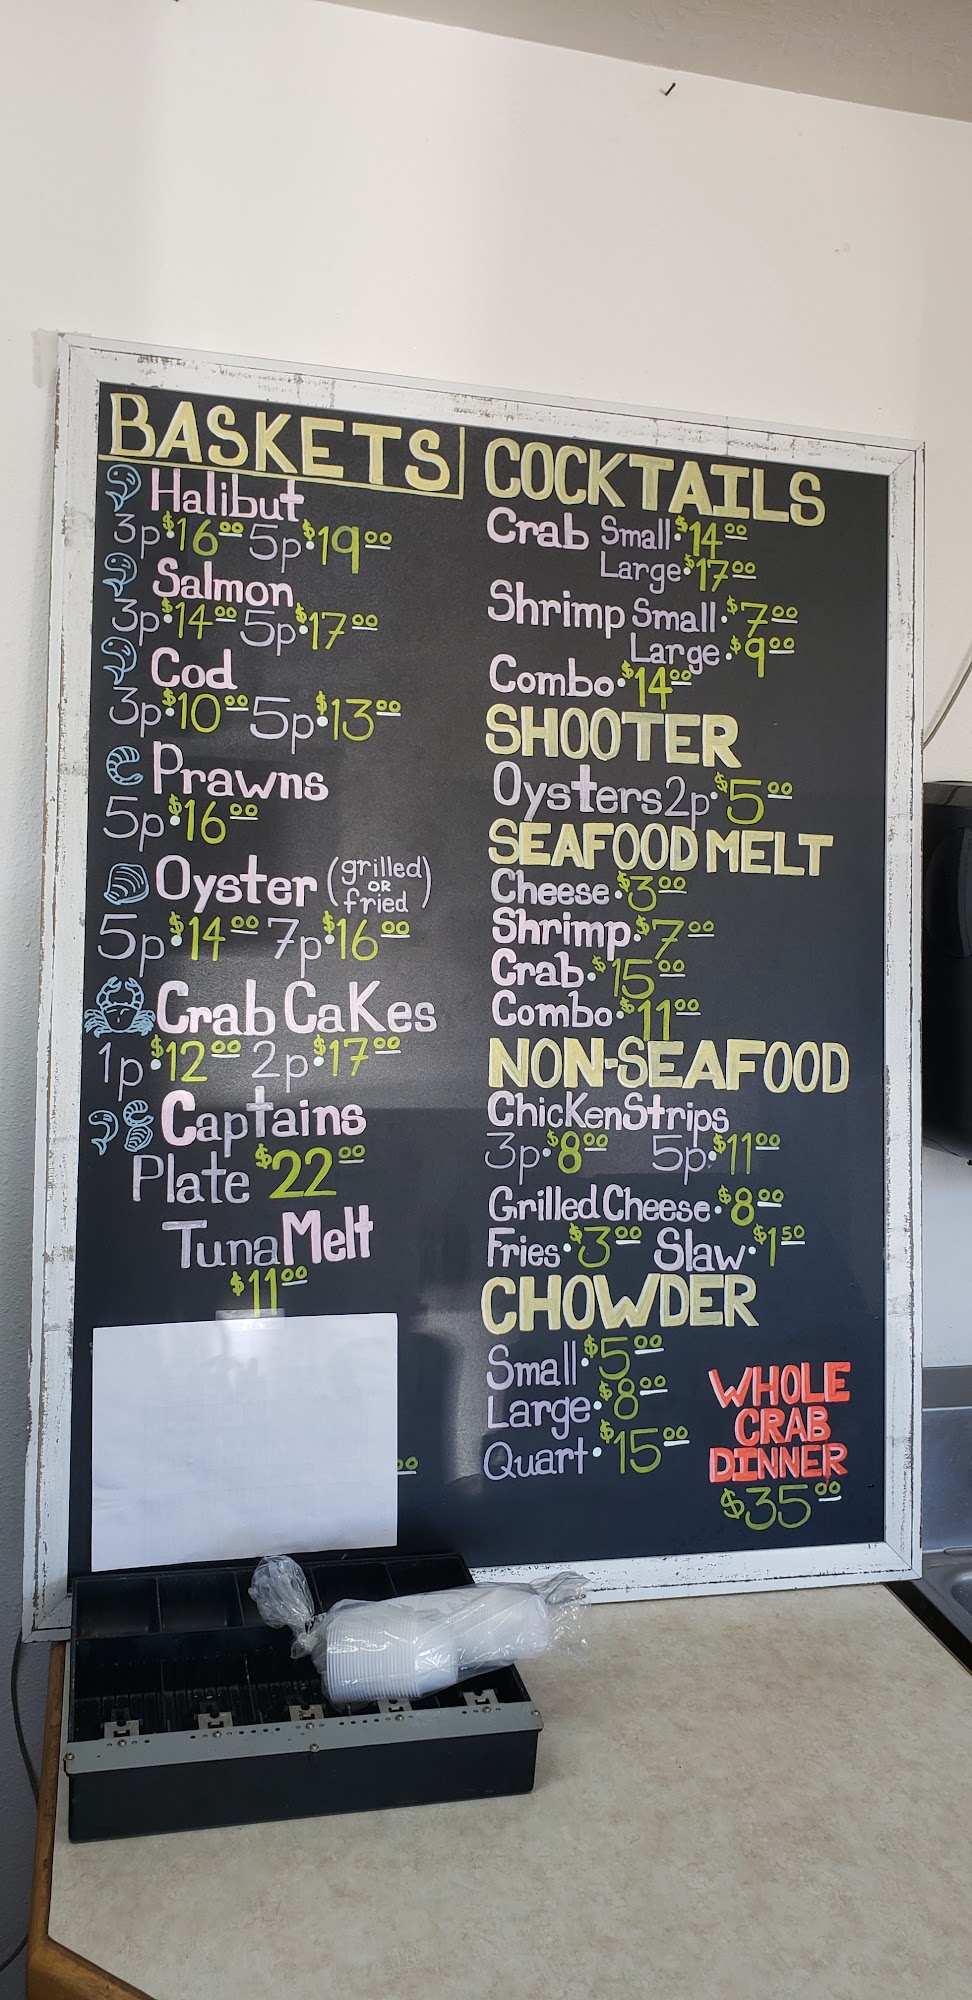 BASKETS
Halibut
3p•$16.00 5p•$19.00
Salmon
3p•$14.00 5p•$17.00
Cod
3p•$10.00 5p•$13.00
Prawns
5p•$16.00
Oyster (grilled OR fried)
5p•$14.00 7p•$16.00
Crab Cakes
1p•$12.00 2p•$17.00
Captains
Plate $22.00
Tuna Melt
$11.00
00
COCKTAILS
Crab Small•$14.00
Large•$17.00
Shrimp Small•$7.00
Large•$9.00
Combo•$14.00
SHOOTER
Oysters 2p•$5.00
SEAFOOD MELT
Cheese•$3.00
Shrimp•$7.00
Crab•$15.00
Combo•$11.00
NON-SEAFOOD
Chicken Strips
3p•$8.00 5p•$11.00
Grilled Cheese•$8.00
Fries•$3.00 Slaw•$1.50
CHOWDER
Small•$5.00
Large•$8.00
Quart•$15.00
WHOLE
CRAB
DINNER
$35.00